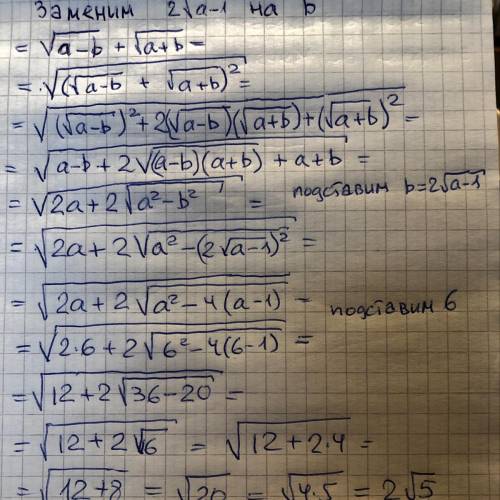 Заменим 2√a-1 на b
= √a-b + √a+b =
= √(√a-b + √a+b)² =
= √(√a-b)² + 2(√a-b)(√a+b) + (√a+b)² =
= √a-b + 2√(a-b)(a+b) + a+b =
= √2a + 2√a² - b² = подставим b = 2√a-1
= √2a + 2√a² - (2√a-1)² =
= √2a + 2√a² - 4(a-1) = подставим 6
= √2·6 + 2√6² - 4(6-1) =
= √12 + 2√36-20 =
= √12 + 2√6 = √12 + 2·4 =
= √12+8 = √20 = √4·5 = 2√5